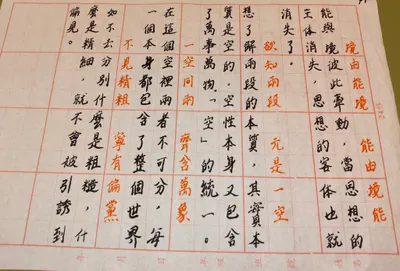 境由能境　能由境能
能與境彼此牽動，當思想的
主体消失了，思想的客体也就
消失了。
欲知兩段　元是一空
想了解兩段的本質，其實本
質是空的，空性本身又包含
了萬事萬物，「空」的統一。
一空同兩　齊含萬象
在這個空裡兩者不可分，每
一個本身都包含了整個世界
不見精粗　寧有偏黨
如不去分別什麼是粗糙，什
麼是精細，就不會被引誘到
偏見。